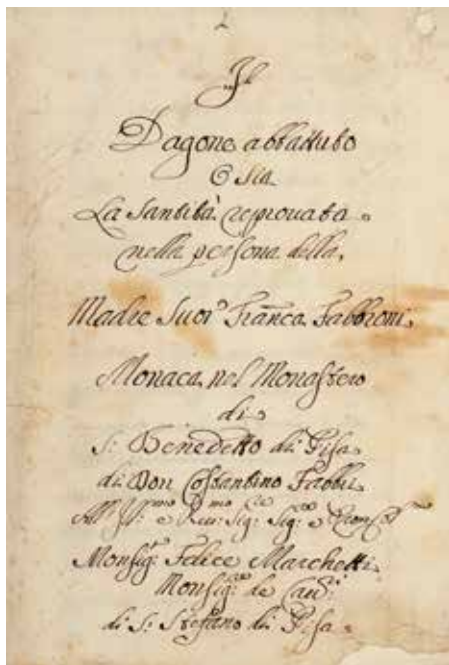 Il
Dagone abbattuto
O sia
La Santità reprovata
nella persona della
Madre Suor Franca Fabbroni
Monaca nel Monastero
di
S: Benedetto di Pisa
di Don Costantino Fabbri
All' Ill:mo e Rev:mo Sig:re Sig:re e
Monsig:re Felice Marchetti
Monsig:re de Cav:ri
di S: Stefano di Pisa